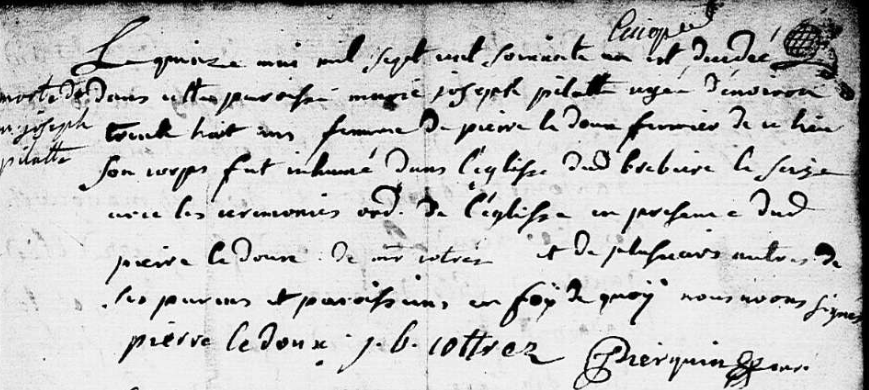 Le quinze mai mil sept cent soixante un est decedé
dans cette paroisse marie joseph pilatte agée d'environ
trente huit ans femme de pierre le doux fermier de ce lieu
son corps fut inhumé dans l'eglise dud brebiere le seize
avec les ceremonies ord. de l'eglise en presence dud
pierre le doux de mr cotrés et de plusieurs autres de
ses parens et paroissiens en foÿ de quoÿ nous avons signés
pierre le doux j. b. cottrez Pierquin
morte de
m. joseph
pilatte